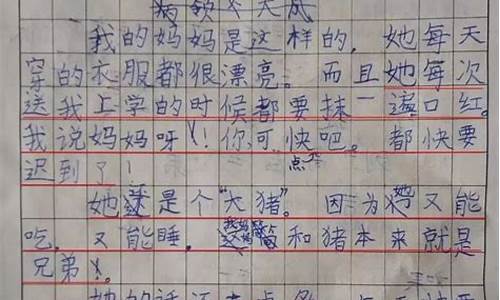 我的妈妈是这样的，她每天
穿的衣服都很漂亮。而且她每次
送我上学的时候都要抹一遍口红。
我说妈妈呀！你可快点吧。都快要
迟到了！
她是个"大猪"。因为她又能
吃，又能睡，我妈妈简直和猪本来就是
兄弟！